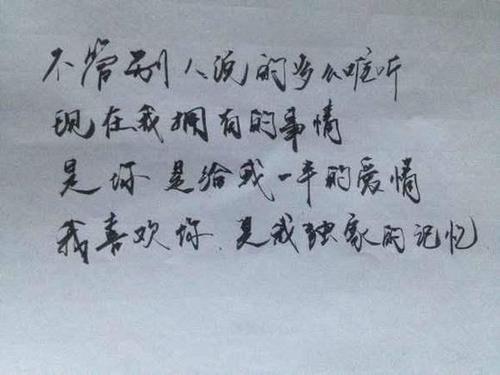 不管别人说的多么难听
现在我拥有的事情
是你 是给我一半的爱情
我喜欢你 是我独家的记忆